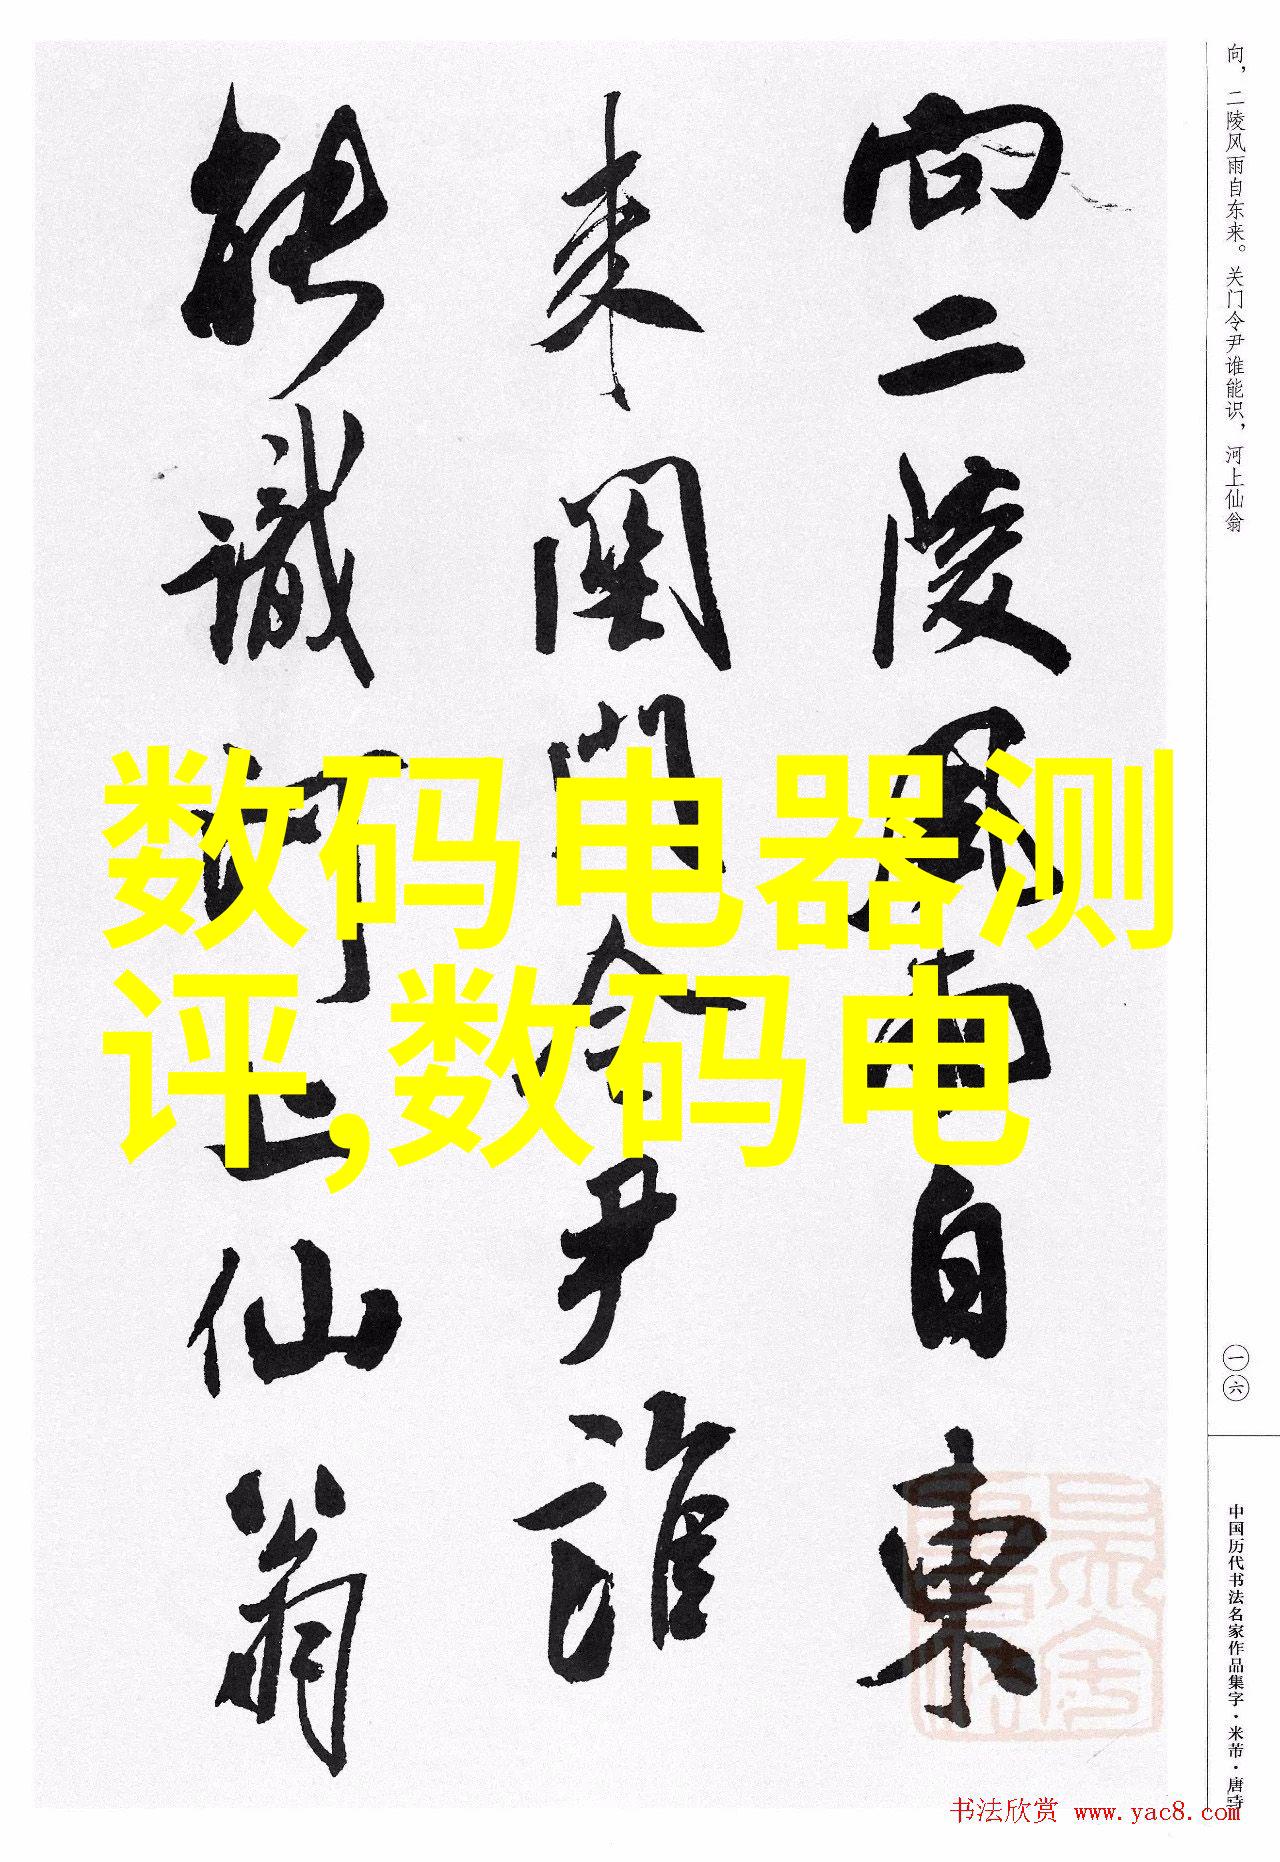 向二陵風雨自東
来関門令尹誰
能識河上仙翁
向，二陵风雨自东来。关门令尹谁能识，河上仙翁
一六
中国历代书法名家作品集字·米芾·唐诗
数码电器测
评,数码电
书法欣赏 www.yac8.com